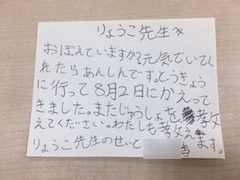 りょうこ先生へ
おぼえていますか?元気でいてく
れたらあんしんです。とうきょう
に行って8月2日にかえって
きました。またじゅうしょを教
えてください。わたしも教えます。
りょうこ先生のせいと